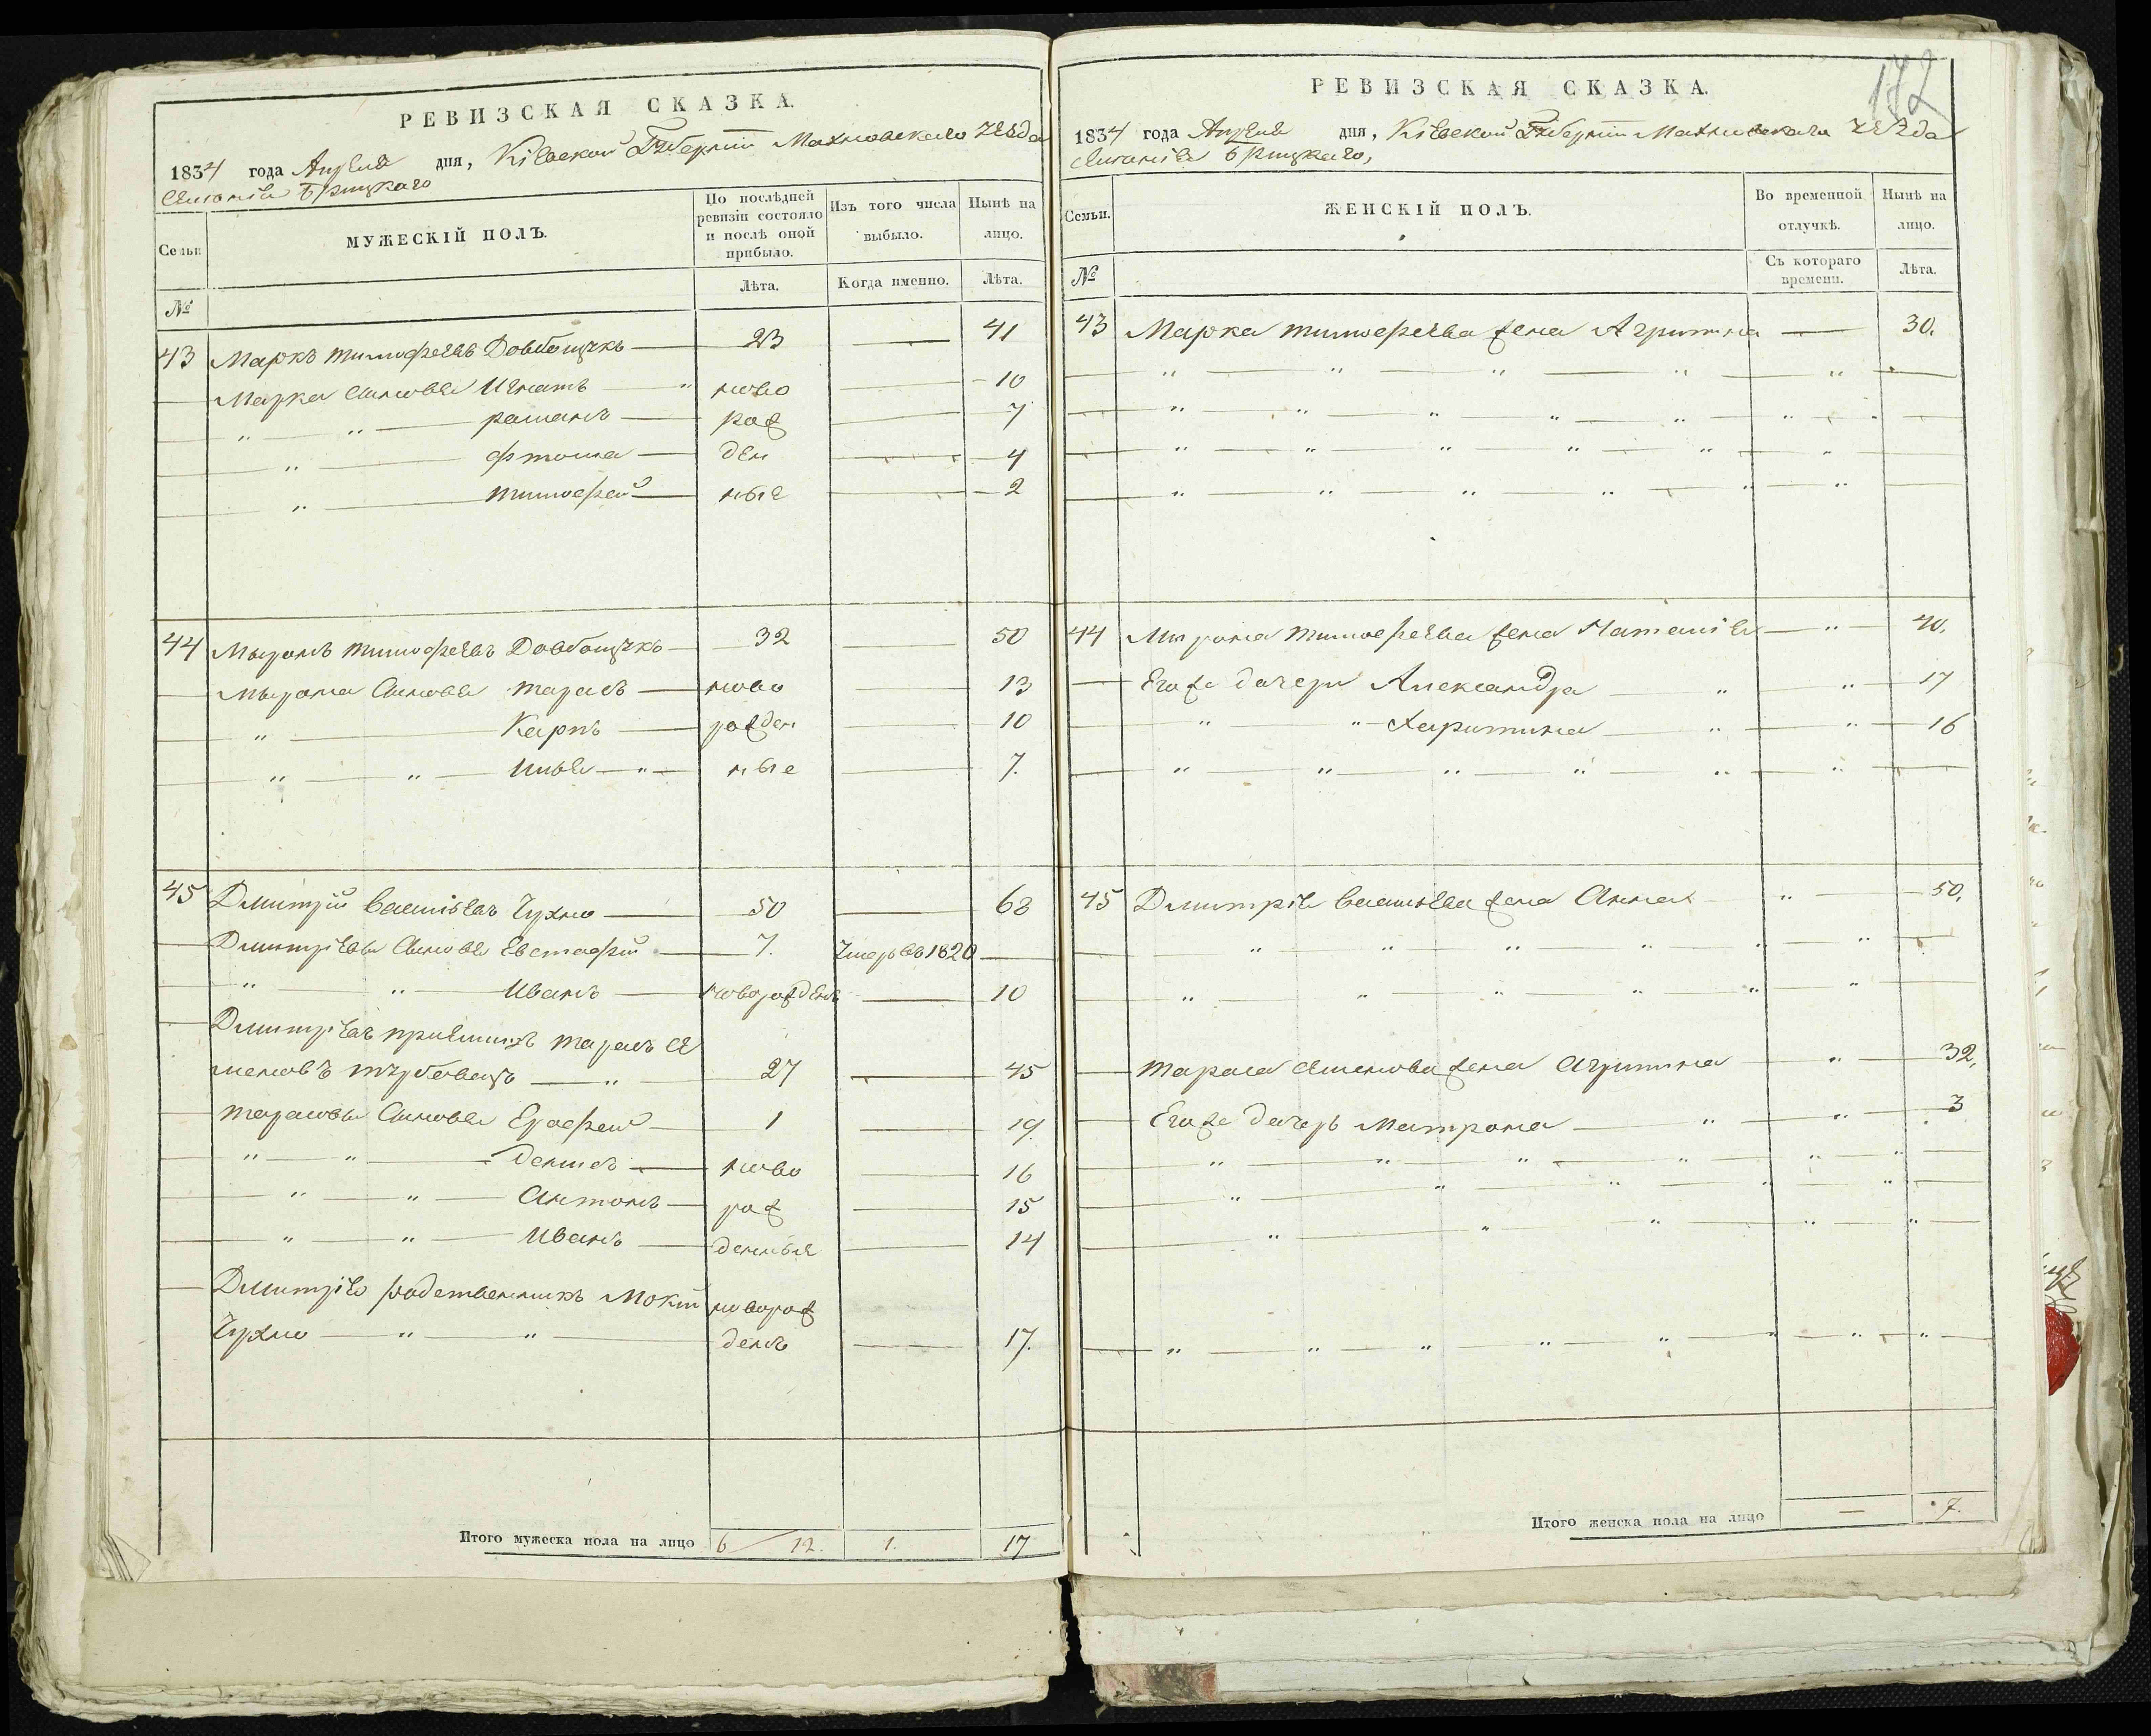 РЕВИЗСКАЯ СКАЗКА.
1834 года Апреля дня, Кіевской Губерніи Махновскаго уезда
МУЖЕСКІЙ ПОЛЪ.
Семьи
№
По послѣдней ревизіи состояло и послѣ оной прибыло.
Лѣта.
Изъ того числа выбыло.
Когда именно.
Нынѣ на лицо.
Лѣта.
43 Маркъ тимофеевъ 23 — 41
Марка синове Игнатъ — " ново — 10
" — " — романъ — рож — 7
" — — ден — 4
" — тимофей — ные — 2
44 Миронъ тимофеевъ — 32 — 50
Мирона Синове тарасъ — ново — 13
" — Карпъ — рожден — 10
" — " — Илья — " — ные — 7.
45 Дмитрій Василіевъ Чухно — 50 — 68
Дмитріевы Синове Евстафій — 7. Умеръ въ 1820 —
" — " — Иванъ — новорожденъ — 10
Дмитріевъ тарасъ се
меновъ — " — 27 — 45
тарасовы Синове Ерофей — 1 — 19.
" — " — Денисъ — ново — 16
" — " — Антонъ — рож — 15
" — " — Иванъ — денные — 14
Дмитрія родственникъ Мокій новорож
Чухно — " — " — денъ — 17.
Итого мужеска пола на лицо 6 / 12. 1. 17
172
РЕВИЗСКАЯ СКАЗКА.
1834 года Апреля дня, Кіевской Губерніи Махновскаго уезда
Семьи.
№
ЖЕНСКІЙ ПОЛЪ.
Во временной отлучкѣ.
Съ котораго времени.
Нынѣ на лицо.
Лѣта.
43 Марка тимофеева жена Агрипина — 30.
44 Мирона тимофеева жена Наталія — " — 40.
Его же дочери Александра — " — " — 17
" " — Харитина — " — " — 16
45 Дмитрія Василіева жена Анна — " — 50.
тараса Семенова жена Агрипина — " — 32.
Его же дочерь Матрона — " — " — 3
Итого женска пола на лицо — 7.